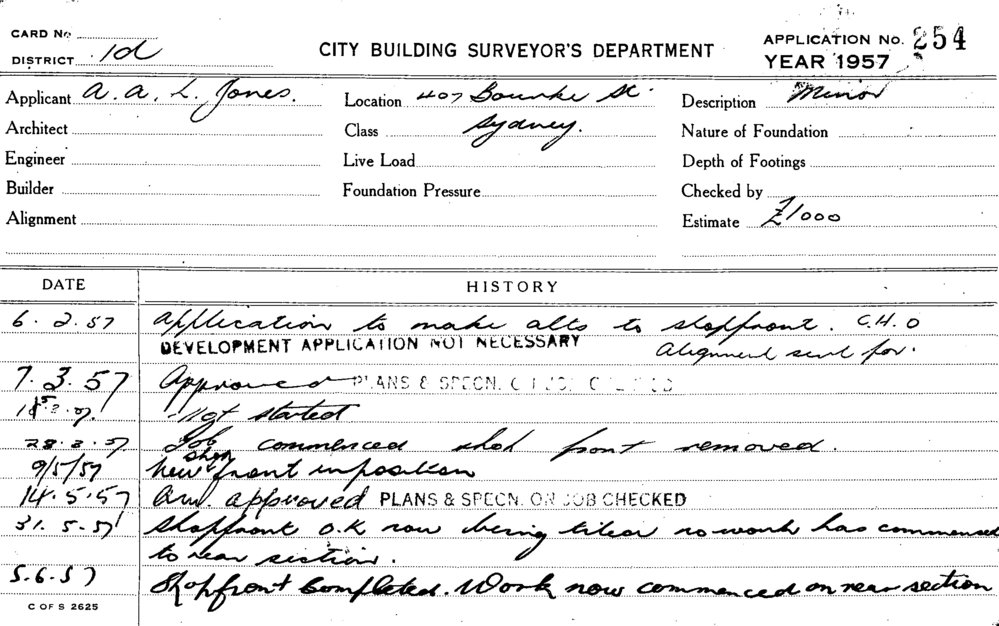 CARD No
DISTRICT 1d
CITY BUILDING SURVEYOR'S DEPARTMENT
APPLICATION No. 254
YEAR 1957
Applicant A. A. L. Jones.
Location 407 Bourke St.
Description Minor
Architect
Class Sydney.
Nature of Foundation
Engineer
Live Load
Depth of Footings
Builder
Foundation Pressure
Checked by
Alignment
Estimate £1000
DATE HISTORY
6.2.57 Application to make alts to shopfront. C.H.O
DEVELOPMENT APPLICATION NOT NECESSARY
Alignment sent for.
7.3.57 Approved PLANS & SPECN.
Not started
28.3.57 Job commenced shop front removed.
9/5/57 New shop front in position
14.5.57 approved PLANS & SPECN. ON JOB CHECKED
31.5.57 Shopfront O.K now being tiled no work has commenced
to rear section.
5.6.57 Shopfront Completed. Work now commenced on rear section
C OF S 2625